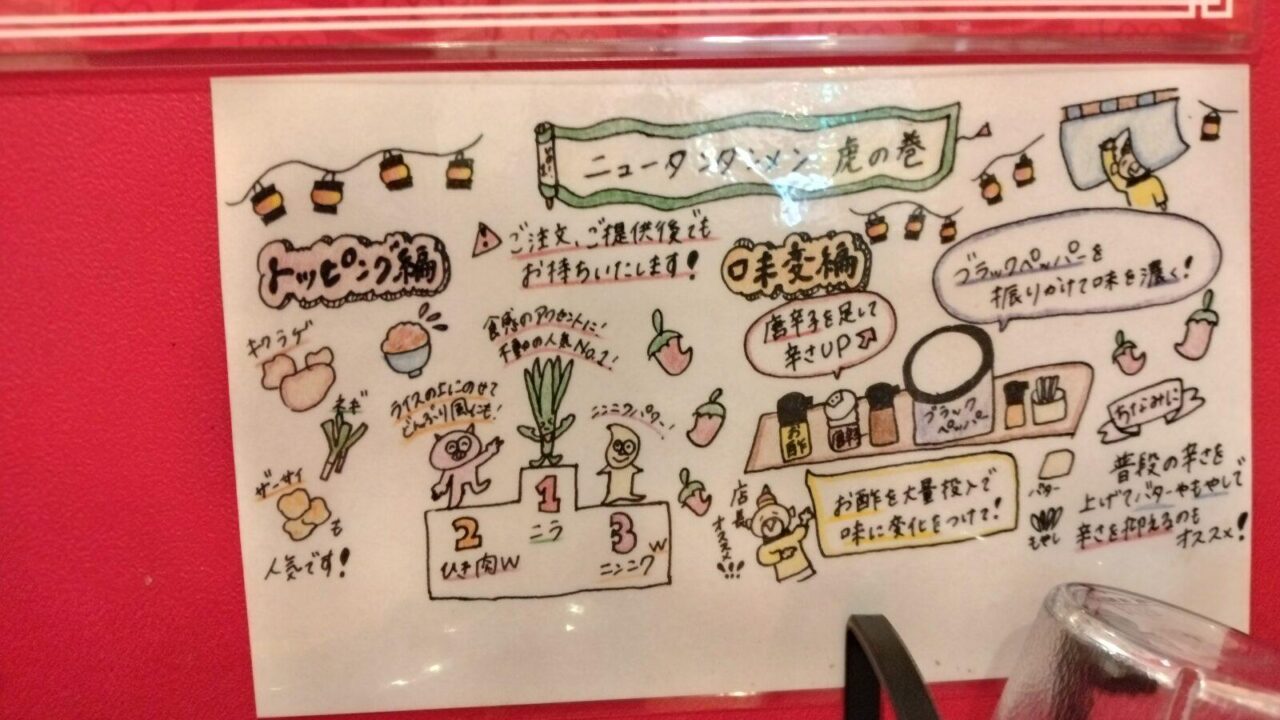 ニュータンタンメン 虎の巻
トッピング編
ご注文、ご提供後でも
お持ちいたします!
キクラゲ
ネギ
ザーサイ
も
人気です!
ライスの上にのせて
どんぶり風にも!
食感のアクセントに!
不動の人気No.1!
ニンニクパワー!
1
ニラ
2
ひき肉W
3
ニンニクW
味変編
唐辛子を足して
辛さUP
ブラックペッパーを
振りかけて味を濃く!
お酢
ブラック
ペッパー
店長
オススメ!!!
お酢を大量投入で
味に変化をつけて!
ちなみに
バター
もやし
普段の辛さを
上げてバターやもやしで
辛さを抑えるのも
オススメ!